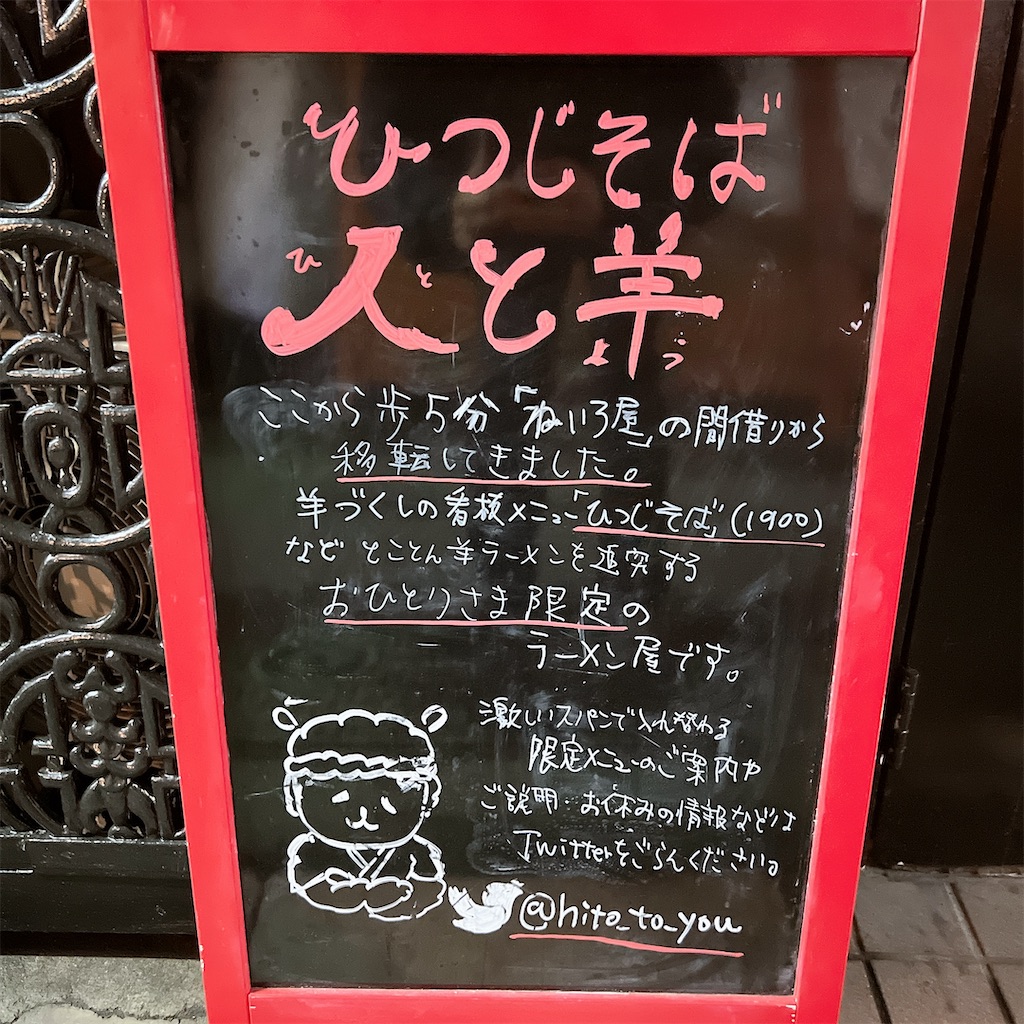 ひつじそば
人と羊
ひ と よう
ここから歩5分「ねいろ屋」の間借りから
移転してきました。
羊づくしの看板メニュー「ひつじそば」(1900)
など とことん羊ラーメンを追究する
おひとりさま限定の
ラーメン屋です。
激しいスパンで入れ替わる
限定メニューのご案内や
ご説明・お休みの情報などは
Twitterをごらんください。
@hito_to_you